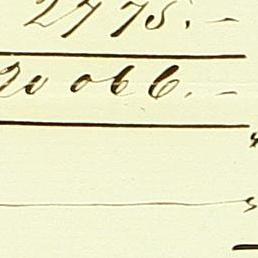 2775.-
20066.-
"
"